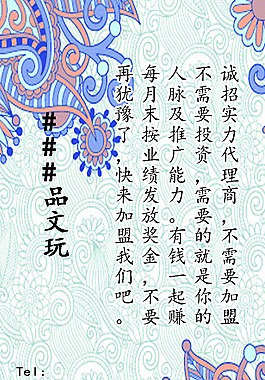 诚招实力代理商，不需要加盟
不需要投资，需要的就是你的
人脉及推广能力。有钱一起赚
每月末按业绩发放奖金，不要
再犹豫了，快来加盟我们吧。
###品文玩
Tel: